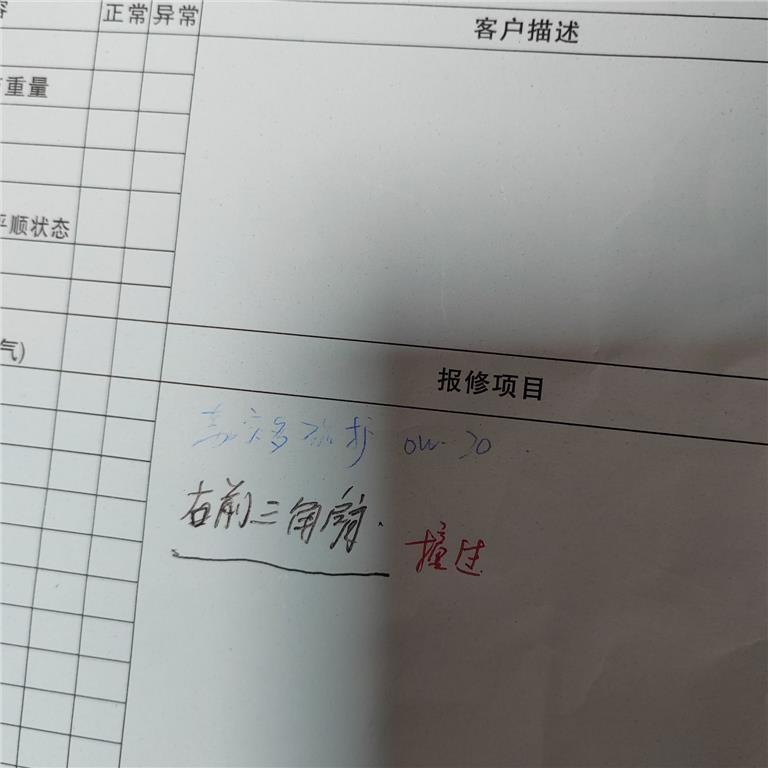 正常 异常
客户描述
重量
平顺状态
气)
报修项目
0W-20
右前三角臂.
撞过